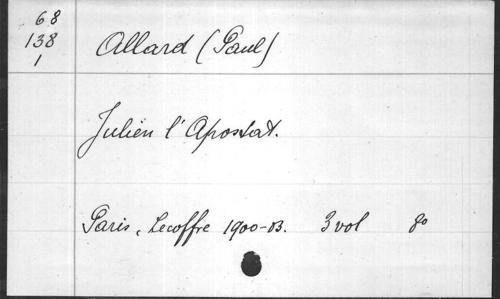 68
138
1
Allard (Paul)
Julien l'Apostat.
Paris, Lecoffre 1900-03. 3 vol 8o